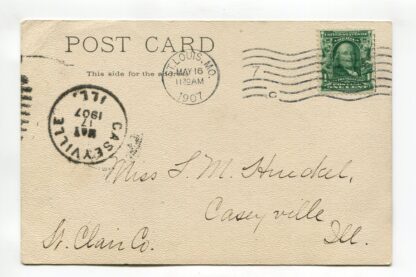 POST CARD
This side for the address
ST. LOUIS, MO.
MAY 16
11 30 AM
1907
7
C
CASEYVILLE
MAY
17
1907
ILL.
Miss L. M. Hueckel,
Caseyville
St. Clair Co.
Ill.